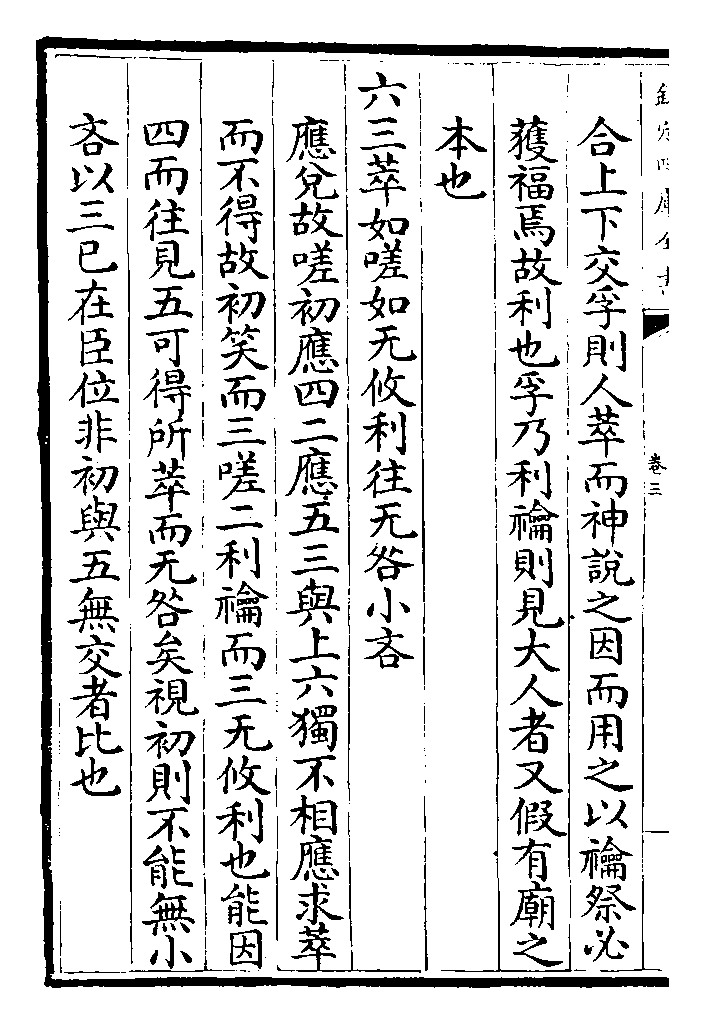 欽定四庫全書
卷三
合上下交孚則人萃而神説之因而用之以禴祭必
獲福焉故利也孚乃利禴則見大人者又假有廟之
本也
六三萃如嗟如无攸利往无咎小吝
應兌故嗟初應四二應五三與上六獨不相應求萃
而不得故初笑而三嗟二利禴而三无攸利也能因
四而往見五可得所萃而无咎矣視初則不能無小
吝以三已在臣位非初與五無交者比也